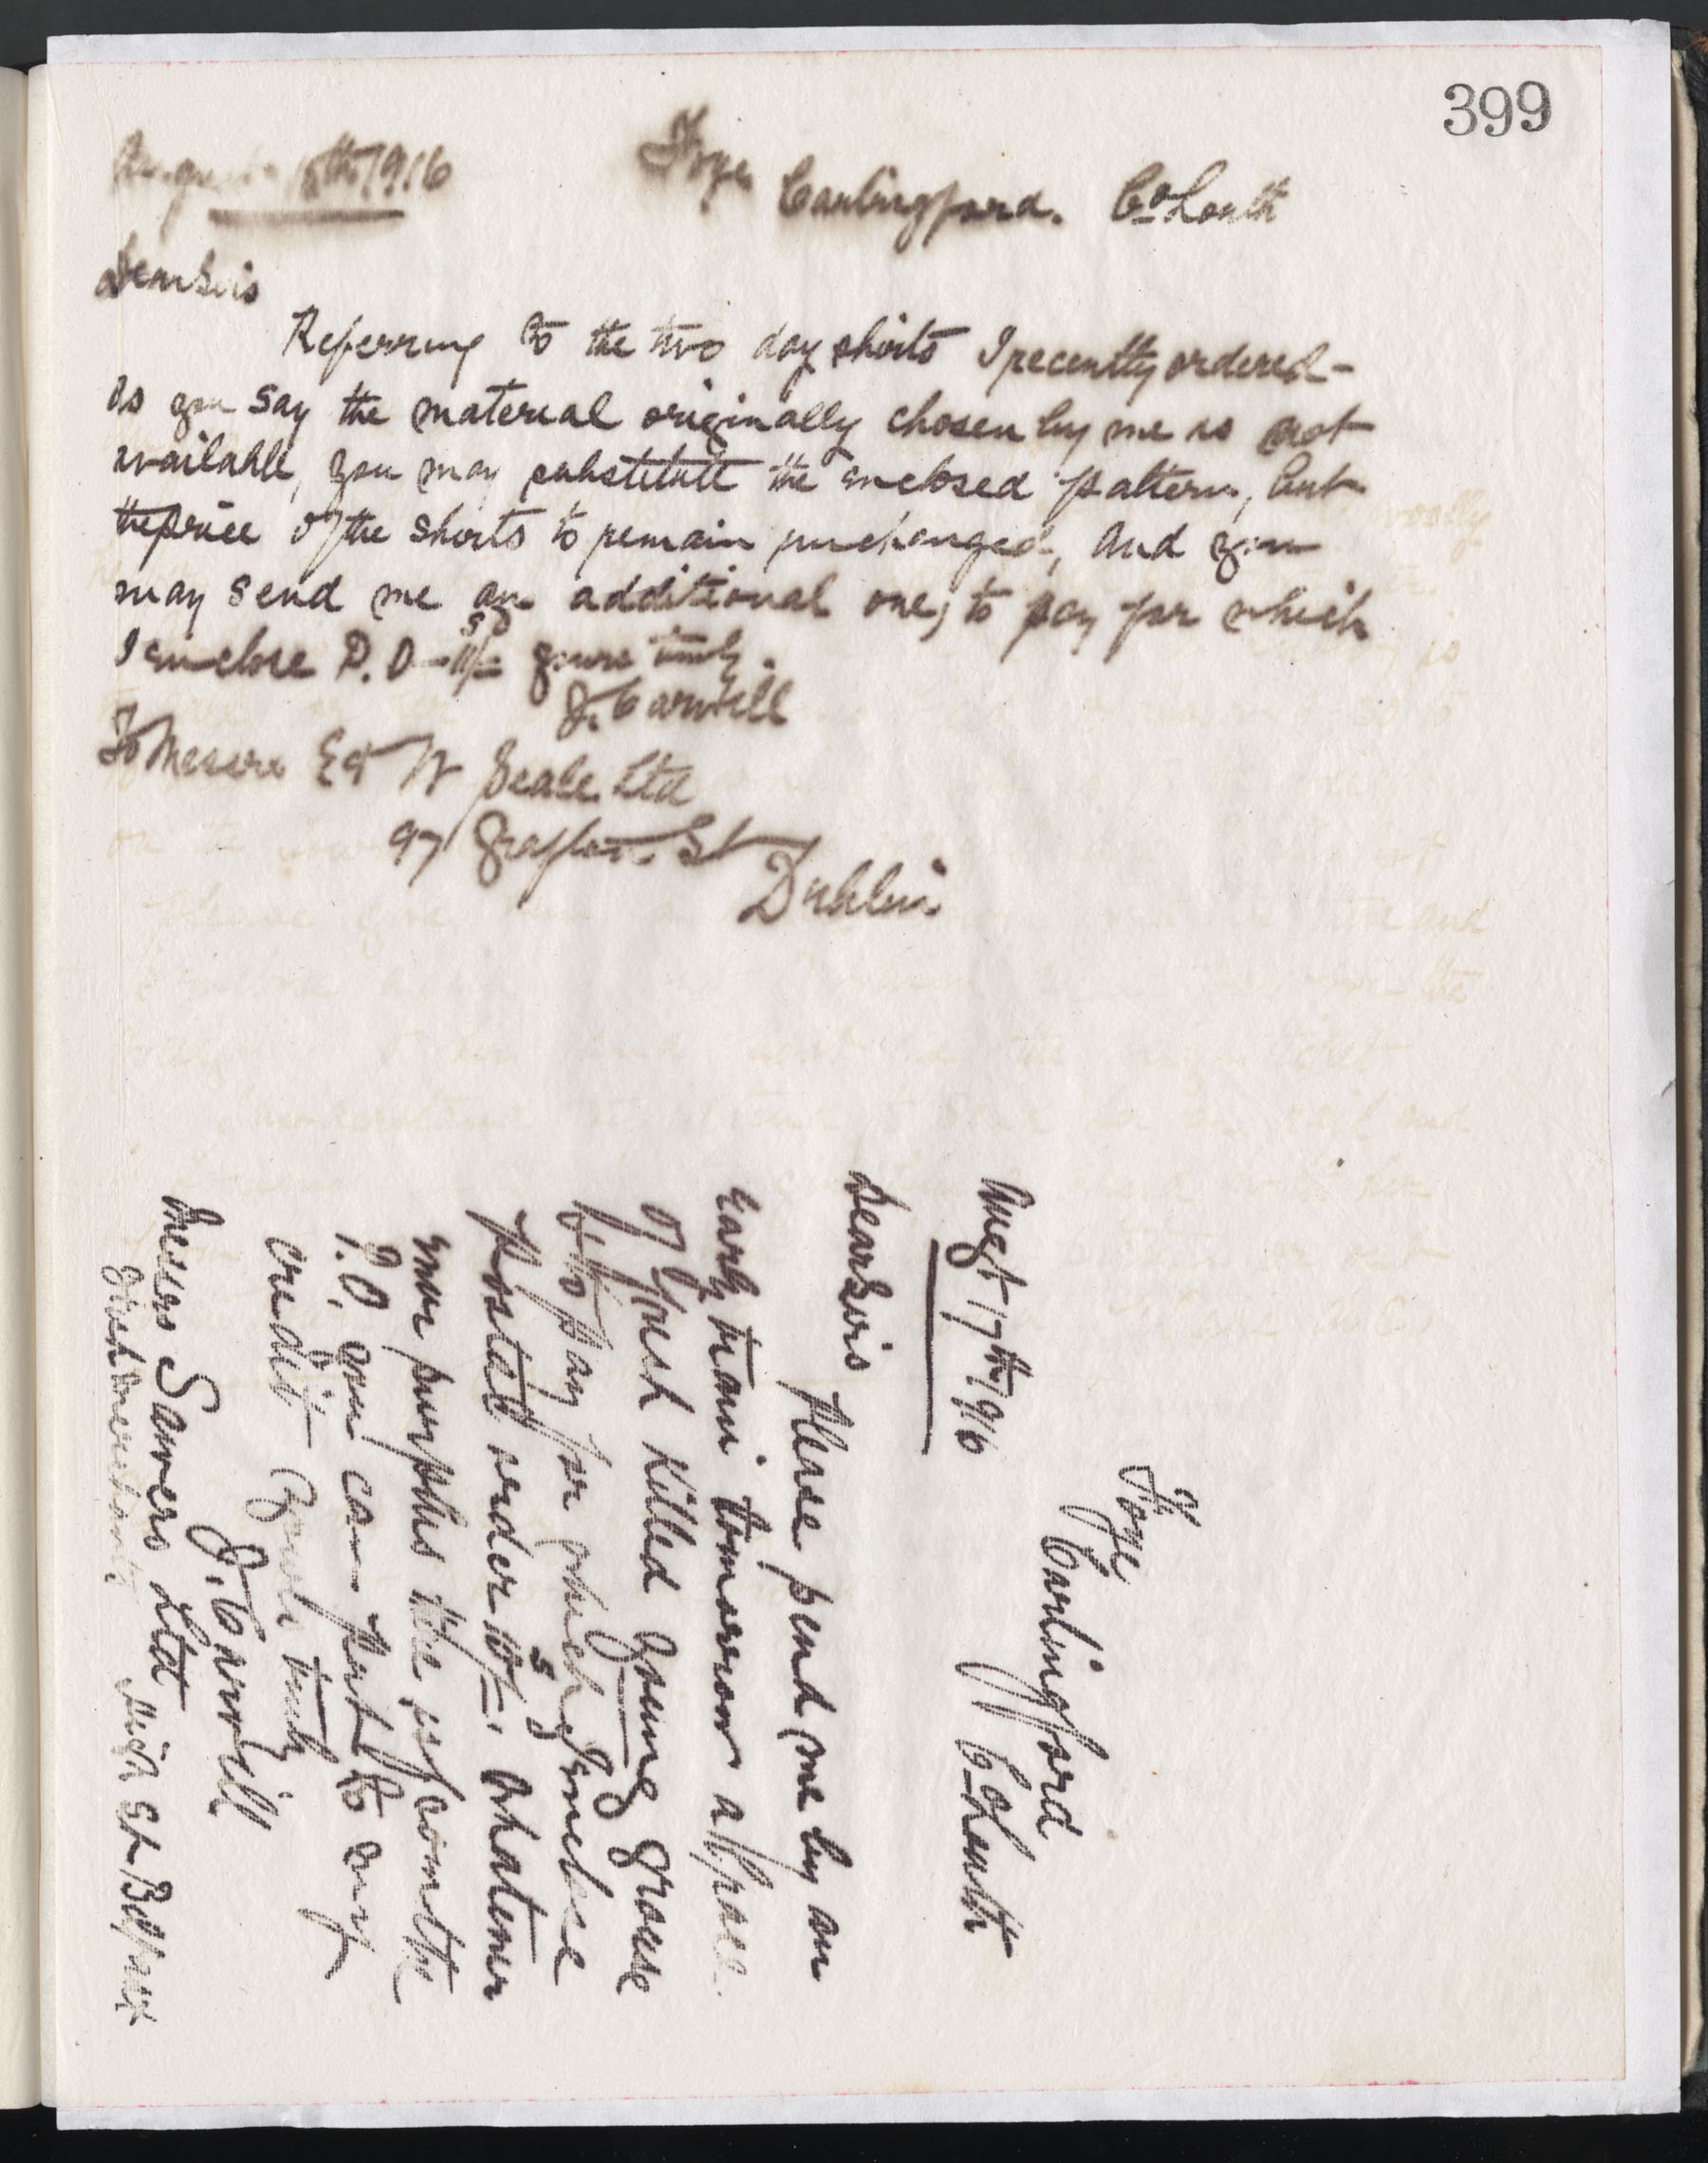 399
August 15th 1916 Foye Carlingford. Co Louth
Dear Sirs
Referring to the two day shirts I recently ordered -
as you say the material originally chosen by me is not
available, you may substitute the enclosed pattern, but
the price of the shirts to remain unchanged, and you
may send me an additional one, to pay for which
I enclose P.O - yours truly.
J. Carvill
To Messrs E & W Seale Ltd
97 Grafton St
Dublin
Foye
Carlingford Co Louth
Augt 17th 1916
Dear Sirs
Please send me by an
early train tomorrow a brace
of fresh killed young grouse
to pay for which I enclose
Postal order 10/-, whatever
sum surplus there is from the
P.O. you can put to my
credit yours truly
J. Carvill
Messrs Sawers Ltd
Fish Merchants High St Belfast